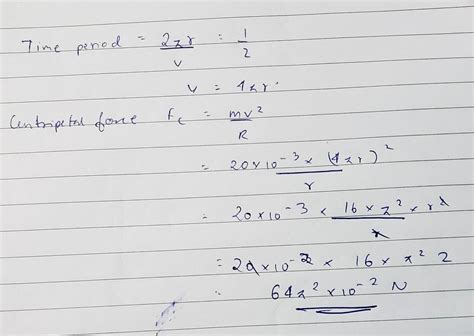 Time period = 2πr/v = 1/2
v = 4πr.
Centripetal force Fc = mv²/R
= 20×10⁻³ × (4πr)²/r
= 20×10⁻³ × 16×π²×r²/r
= 20×10⁻³ × 16 × π² 2
= 64π²×10⁻² N